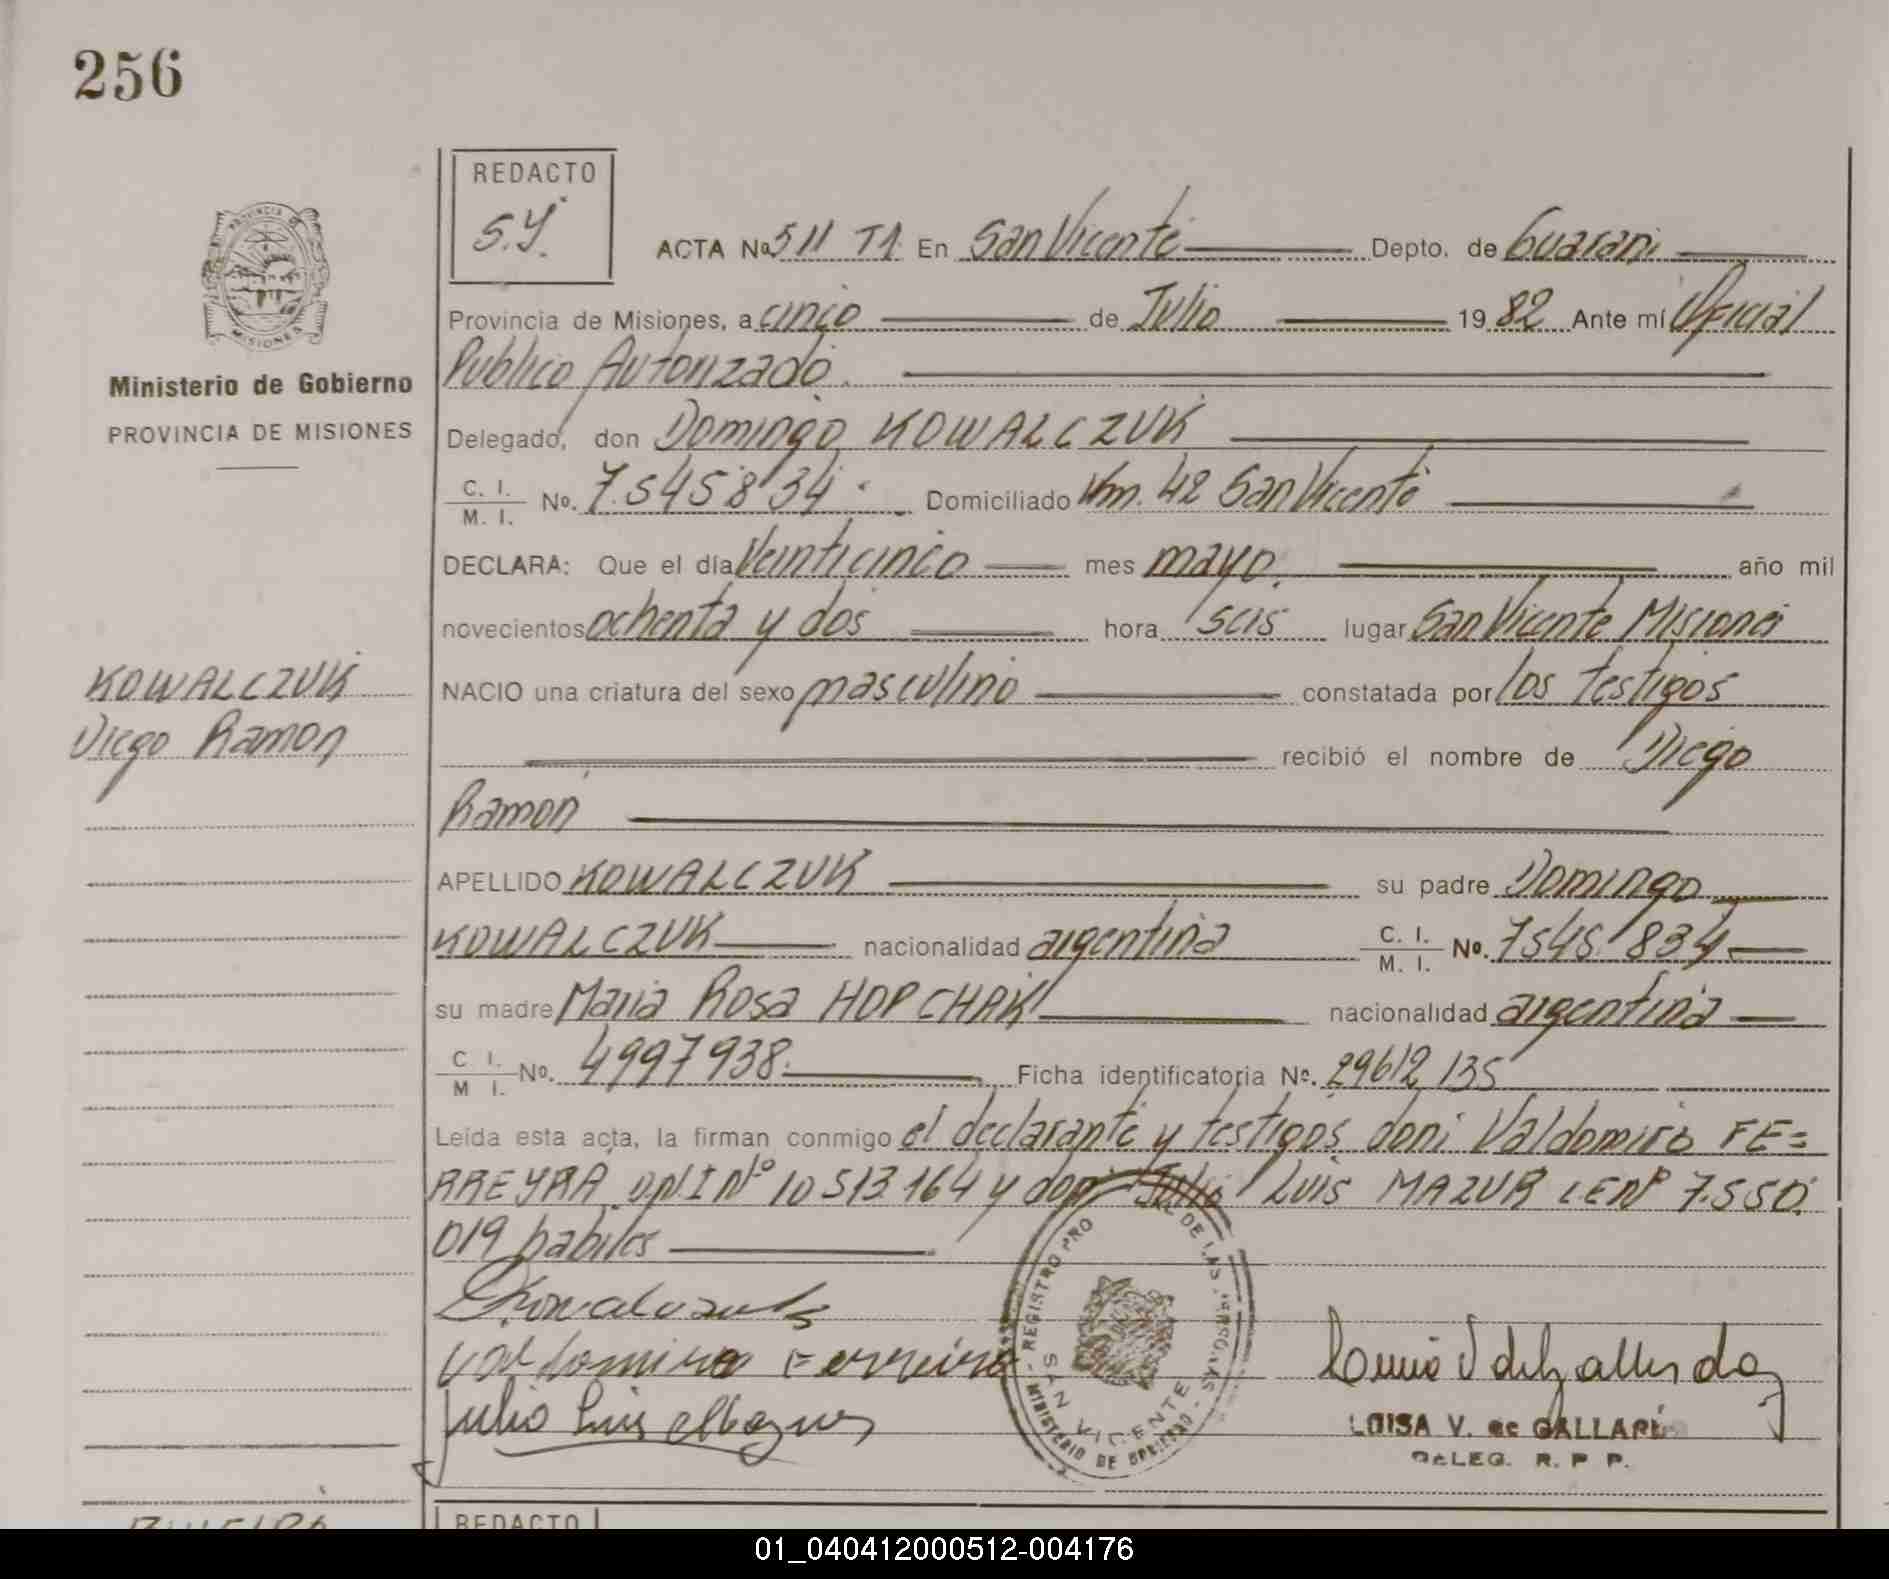 256
REDACTO
S.Y.
ACTA No 511 T1 En San Vicente Depto. de Guarani
Provincia de Misiones, a cinco de Julio 19 82 Ante mí Oficial
Publico Autorizado.
Ministerio de Gobierno
PROVINCIA DE MISIONES
Delegado, don Domingo KOWALCZUK
C. I. / M. I. No. 7.545 834. Domiciliado Km. 42 San Vicente
DECLARA: Que el día Veinticinco mes mayo. año mil
novecientos ochenta y dos hora seis lugar San Vicente Misiones
KOWALCZUK
Diego Ramon
NACIO una criatura del sexo masculino constatada por los testigos
recibió el nombre de Diego
Ramon
APELLIDO KOWALCZUK su padre Domingo
KOWALCZUK nacionalidad argentina C. I. / M. I. No. 7545.834
su madre Maria Rosa HOPCHAK nacionalidad argentina
C. I. / M. I. No. 4997938. Ficha identificatoria No. 29612 135
Leída esta acta, la firman conmigo el declarante y testigos don: Valdomiro FE=
RREYRA DNI Nº 10 513.164 y don Julio Luis MAZUR LE Nº 7.550.
019 habiles
Valdomiro Ferreira
Julio Luis
REGISTRO PROVINCIAL DE LAS PERSONAS - MINISTERIO DE GOBIERNO -
SAN VICENTE
LUISA V. de GALLARDO
DELEG. R. P. P.
REDACTO
01_040412000512-004176